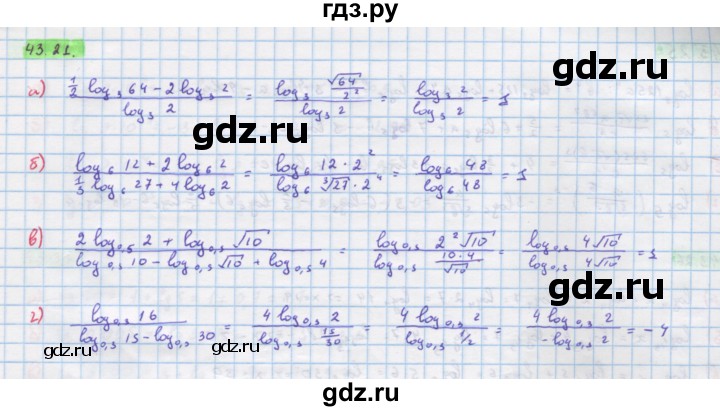 гдз.ру
43.21.
а) \frac{\frac{1}{2} log_3 64 - 2 log_3 2}{log_3 2} = \frac{log_3 \frac{\sqrt{64}}{2^2}}{log_3 2} = \frac{log_3 2}{log_3 2} = 1
gdz.ru
б) \frac{log_6 12 + 2 log_6 2}{\frac{1}{3} log_6 27 + 4 log_6 2} = \frac{log_6 12 \cdot 2^2}{log_6 \sqrt[3]{27} \cdot 2^4} = \frac{log_6 48}{log_6 48} = 1
в) \frac{2 log_{0,5} 2 + log_{0,3} \sqrt{10}}{log_{0,3} 10 - log_{0,3} \sqrt{10} + log_{0,3} 4} = \frac{log_{0,3} 2^2 \sqrt{10}}{log_{0,3} \frac{10 \cdot 4}{\sqrt{10}}} = \frac{log_{0,3} 4\sqrt{10}}{log_{0,3} 4\sqrt{10}} = 1
gdz.ru
г) \frac{log_{0,3} 16}{log_{0,3} 15 - log_{0,3} 30} = \frac{4 log_{0,3} 2}{log_{0,3} \frac{15}{30}} = \frac{4 log_{0,3} 2}{log_{0,3} 1/2} = \frac{4 log_{0,3} 2}{- log_{0,3} 2} = -4
gdz.ru
gdz.ru
gdz.ru